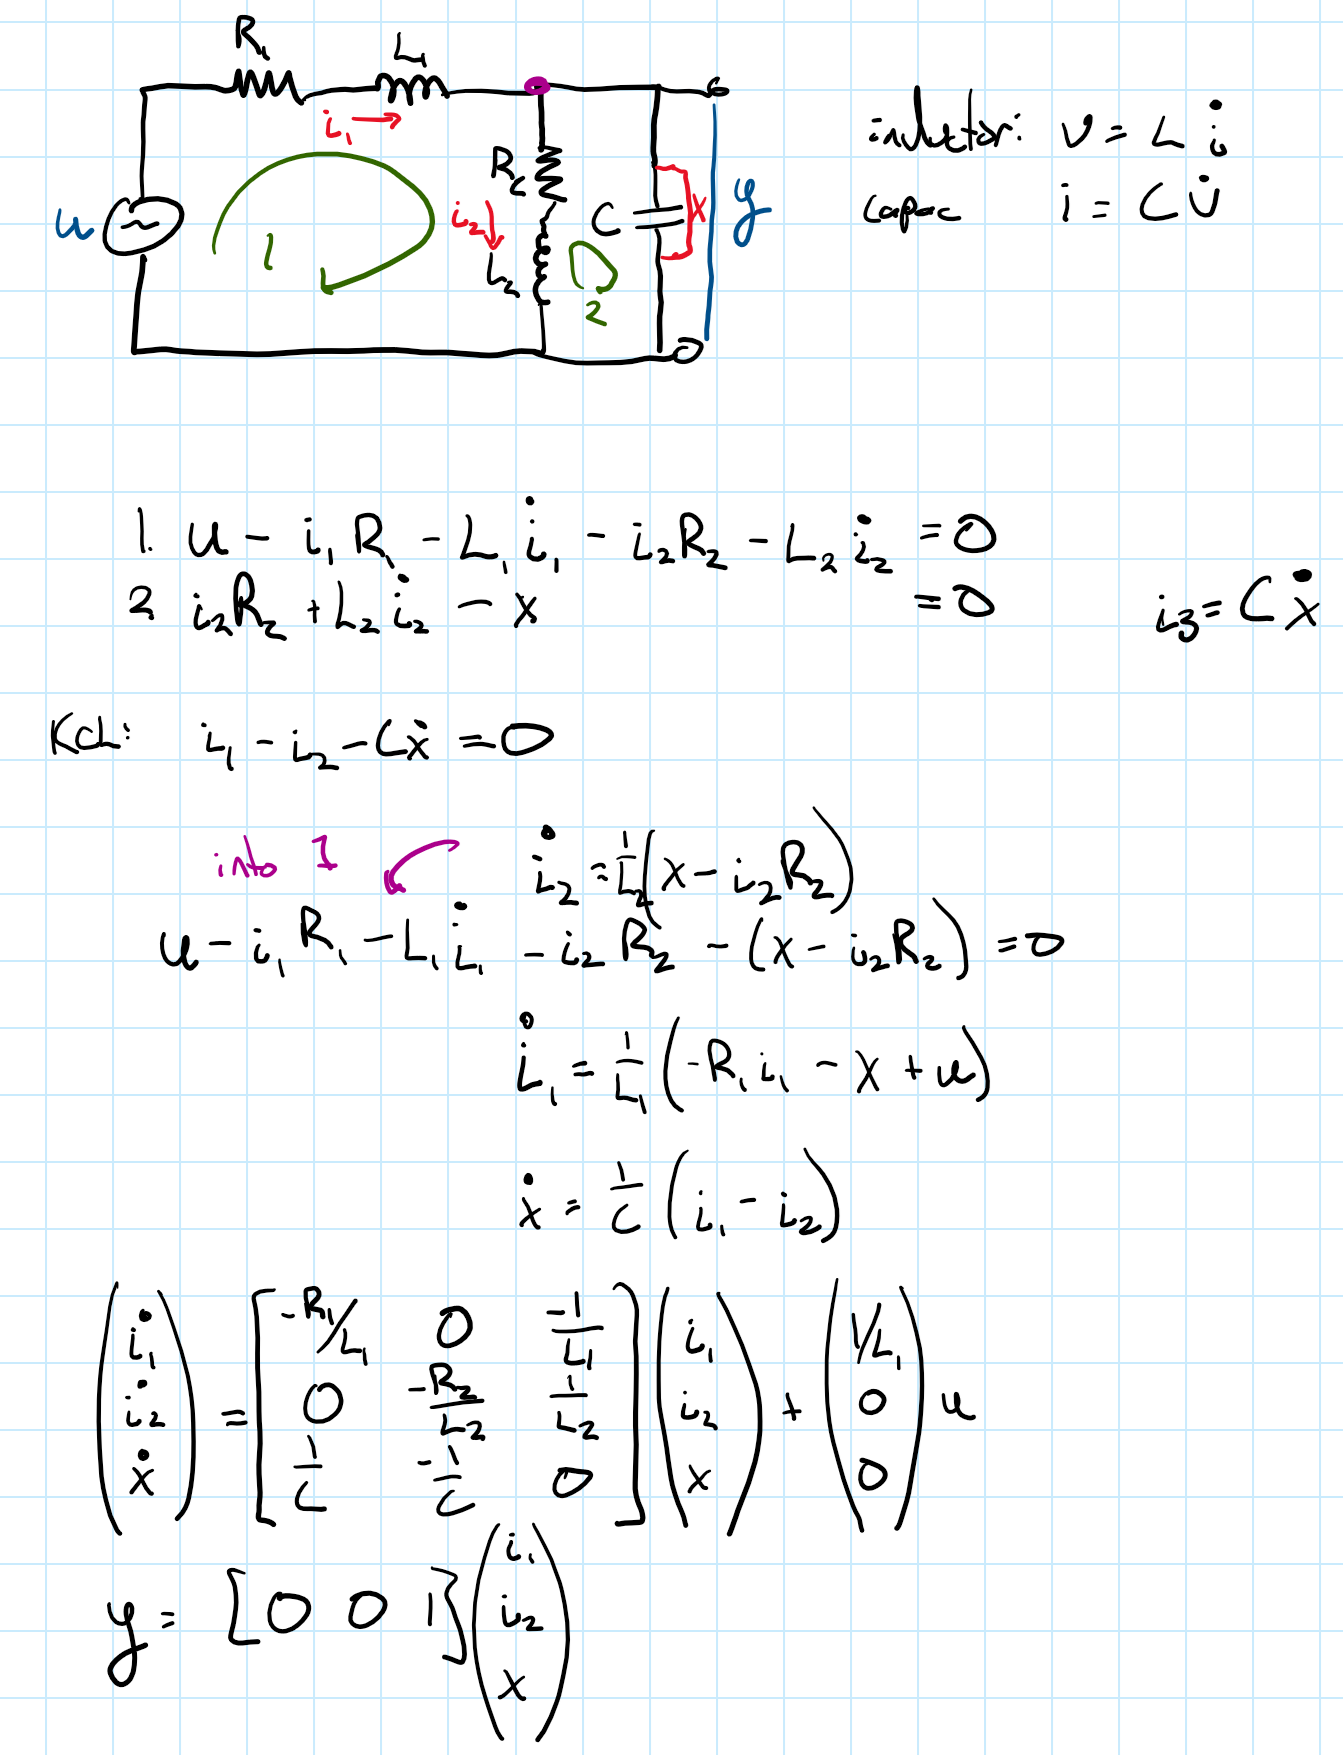 R₁ L₁
i₁ →
u 1 i₂ R_c L₂ 2 C x y
inductor: v = L i̇
capac i = C v̇
1. u - i₁R₁ - L₁i̇₁ - i₂R₂ - L₂i̇₂ = 0
2 i₂R₂ + L₂i̇₂ - x = 0
i₃ = Cẋ
KCL: i₁ - i₂ - Cẋ = 0
into 1
i̇₂ = 1/L₂ (x - i₂R₂)
u - i₁R₁ - L₁i̇₁ - i₂R₂ - (x - i₂R₂) = 0
i̇₁ = 1/L₁ (-R₁i₁ - x + u)
ẋ = 1/C (i₁ - i₂)
(i̇₁ i̇₂ ẋ) = [-R₁/L₁ 0 -1/L₁ 0 -R₂/L₂ 1/L₂ 1/C -1/C 0] (i₁ i₂ x) + (1/L₁ 0 0) u
y = [0 0 1] (i₁ i₂ x)